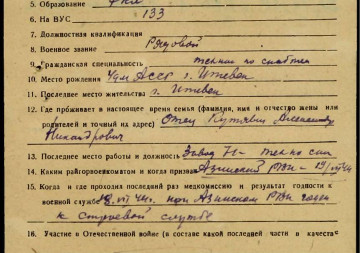 5. Образование
6. На ВУС 133
7. Должностная квалификация
8. Военное звание Рядовой
9. Гражданская специальность техник по
10. Место рождения АССР г. Ижевск
11. Последнее место жительства г. Ижевск
12. Где проживает в настоящее время семья (фамилия, имя и отчество жены или
родителей и точный их адрес) Отец Александр
Никандрович
13. Последнее место работы и должность Завод 71 –
14. Каким райгорвоенкоматом и когда призван Азинский РВК –
15. Когда и где проходил последний раз медкомиссию и результат годности к
военной службе при Азинском РВК годен
к строевой службе
16. Участие в Отечественной войне (в составе какой последней части в качестве